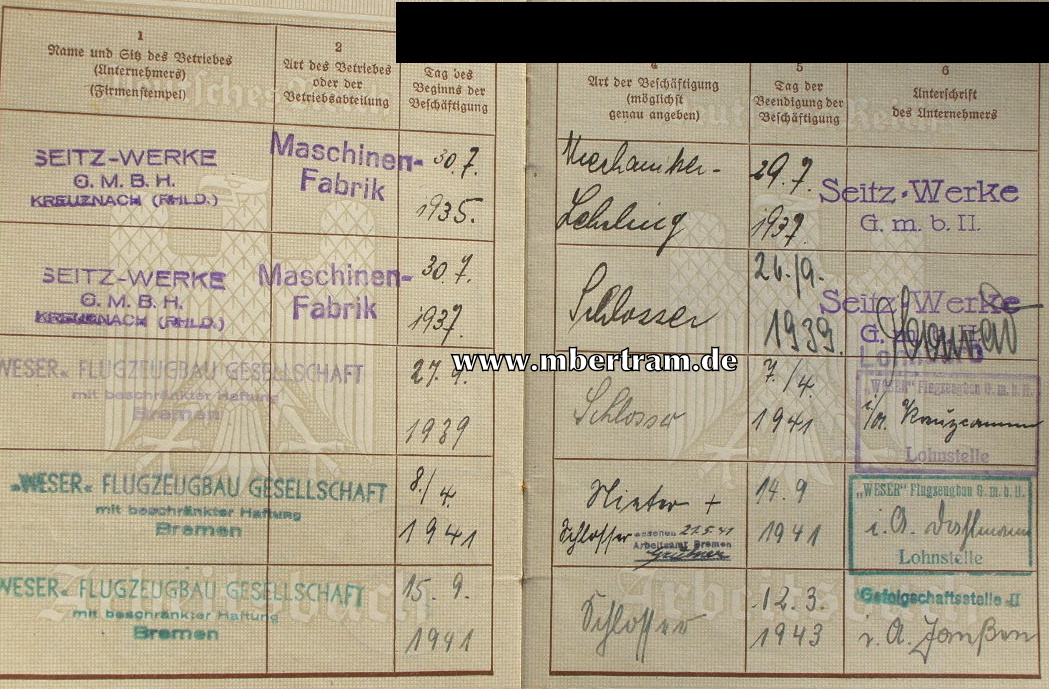 1
Name und Sitz des Betriebes
(Unternehmers)
(Firmenstempel)
2
Art des Betriebes
oder der
Betriebsabteilung
Tag des
Beginns der
Beschäftigung
4
Art der Beschäftigung
(möglichst
genau angeben)
5
Tag der
Beendigung der
Beschäftigung
6
Unterschrift
des Unternehmers
SEITZ-WERKE
G. M. B. H.
KREUZNACH (RHLD.)
Maschinen-
Fabrik
30.7.
1935.
Mechaniker-
Lehrling
29.7.
1937.
Seitz-Werke
G. m. b. H.
SEITZ-WERKE
G. M. B. H.
KREUZNACH (RHLD.)
Maschinen-
Fabrik
30.7.
1937.
Schlosser
26./9.
1939.
Seitz-Werke
G. m. b. H.
WESER FLUGZEUGBAU GESELLSCHAFT
mit beschränkter Haftung
Bremen
27.9.
1939
Schlosser
7./4.
1941
„WESER" Flugzeugbau G. m. b. H.
i/A.
Lohnstelle
„WESER" FLUGZEUGBAU GESELLSCHAFT
mit beschränkter Haftung
Bremen
8./4.
1941
Nieter +
Schlosser
21.5.41
Arbeitsamt Bremen
14.9
1941
„WESER" Flugzeugbau G. m. b. H.
i. A.
Lohnstelle
WESER FLUGZEUGBAU GESELLSCHAFT
mit beschränkter Haftung
Bremen
15.9.
1941
Schlosser
12.3.
1943
Gefolgschaftsstelle II
i. A. Janßen
www.mbertram.de